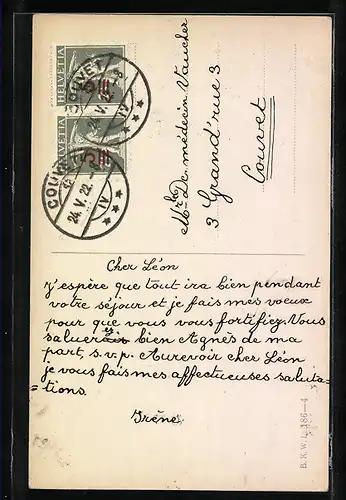 HELVETIA
5
COUVET
24.V.22.-8
IV
HELVETIA
5
COUVET
24.V.22.
IV
Mr le Dr. médecin Vaucher
3 Grand'rue 3
Couvet
Cher Léon
J'espère que tout ira bien pendant
votre séjour et je fais mes voeux
pour que vous vous fortifiez. Vous
saluerez bien Agnès de ma
part, s.v.p. Aurevoir cher Léon
je vous fais mes affectueuses saluta=
=tions.
Irène.
B. K. W. I. 186-4